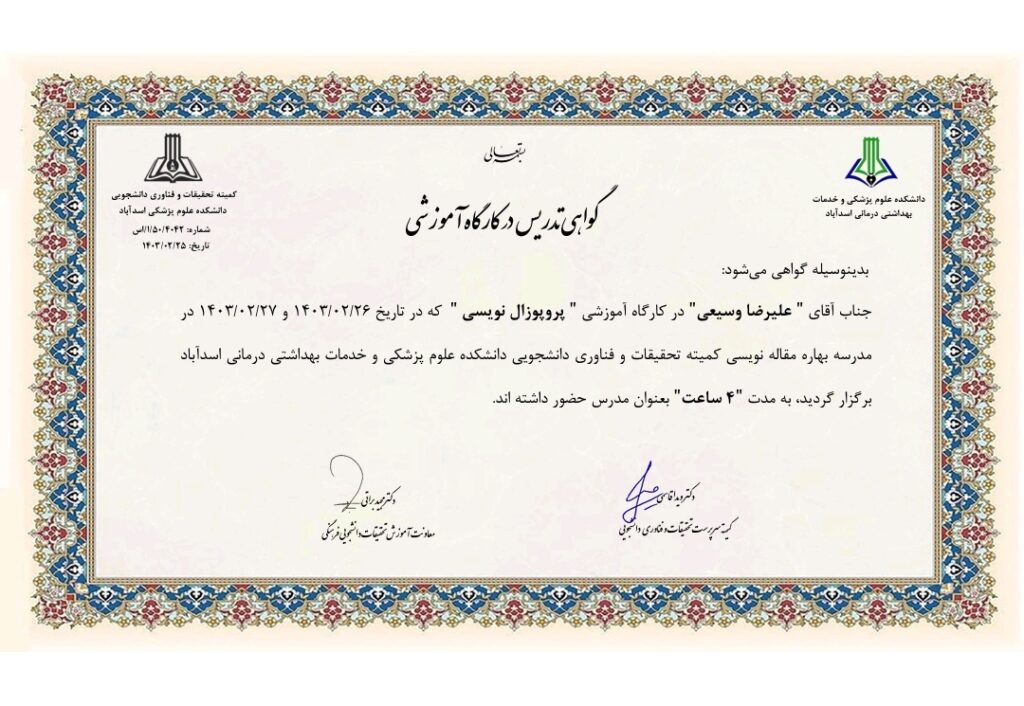 بسمه‌تعالی
دانشکده علوم پزشکی و خدمات
بهداشتی درمانی اسدآباد
کمیته تحقیقات و فناوری دانشجویی
دانشکده علوم پزشکی اسدآباد
شماره: ۱/۵۰/۴۰۴۲/س
تاریخ: ۱۴۰۳/۰۲/۲۵
گواهی تدریس در کارگاه آموزشی
بدینوسیله گواهی می‌شود:
جناب آقای " علیرضا وسیعی" در کارگاه آموزشی " پروپوزال نویسی " که در تاریخ ۱۴۰۳/۰۲/۲۶ و ۱۴۰۳/۰۲/۲۷ در
مدرسه بهاره مقاله نویسی کمیته تحقیقات و فناوری دانشجویی دانشکده علوم پزشکی و خدمات بهداشتی درمانی اسدآباد
برگزار گردید، به مدت "۴ ساعت" بعنوان مدرس حضور داشته اند.
دکتر ویدا قاسمی
کمیته سرپرست تحقیقات و فناوری دانشجویی
دکتر مجید براتی
معاونت آموزش تحقیقات دانشجویی فرهنگی